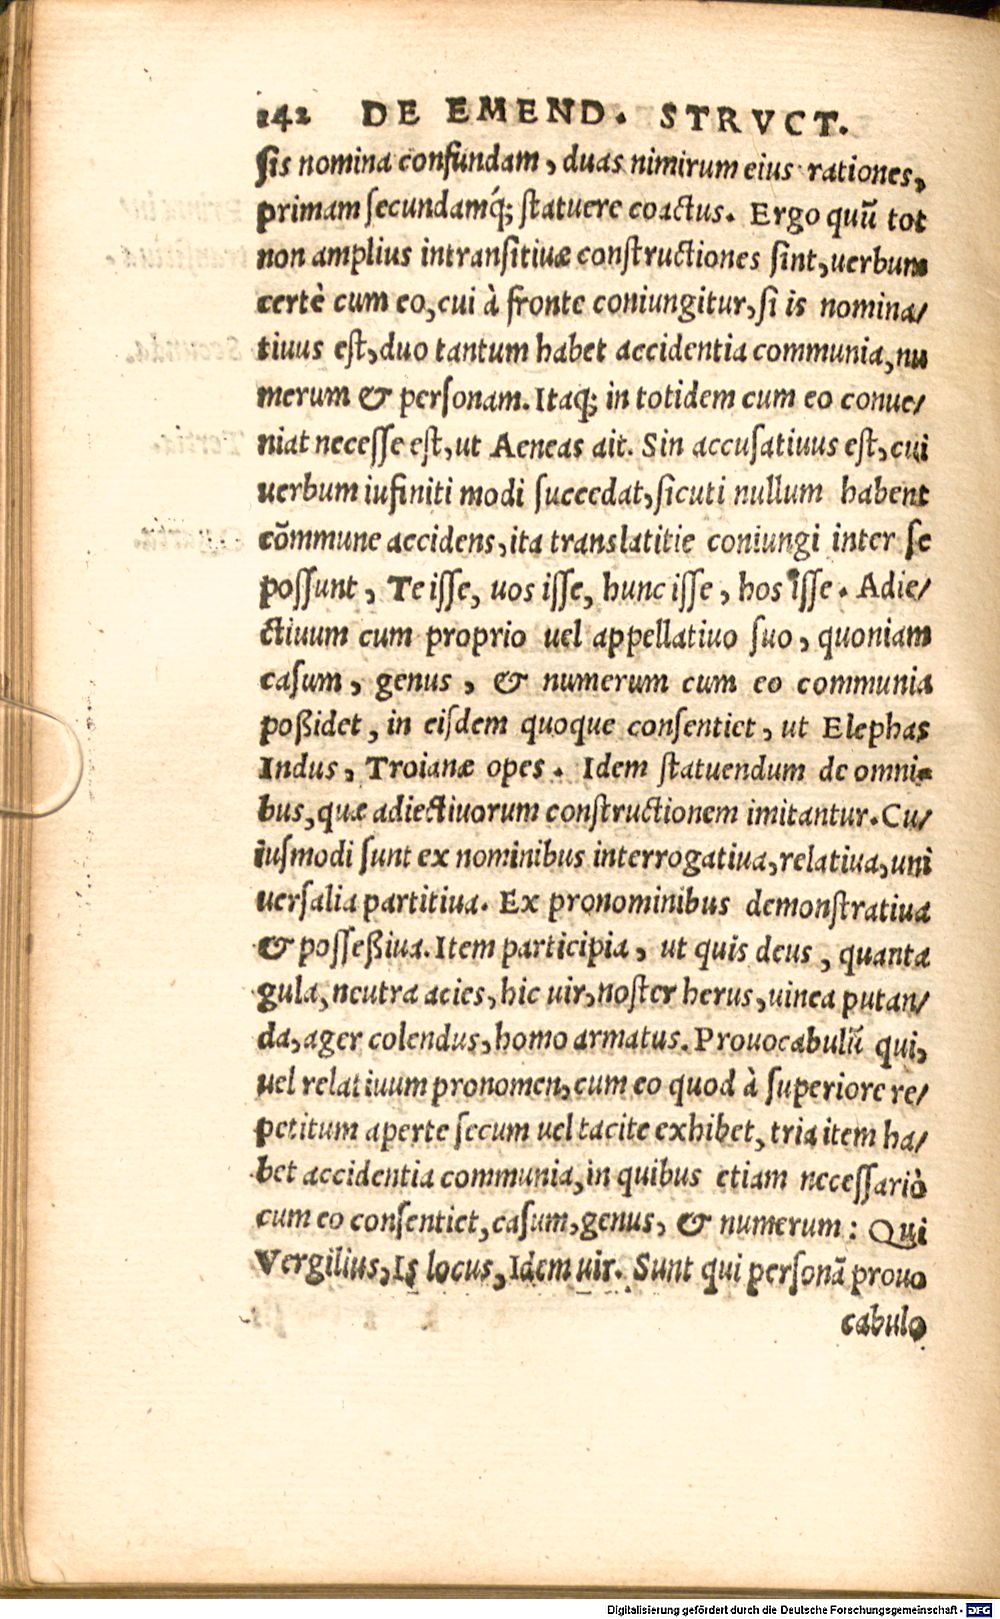 142 DE EMEND. STRVCT.
sis nomina confundam, duas nimirum eius rationes,
primam secundamq́; statuere coactus. Ergo quũ tot
non amplius intransitiuæ constructiones sint, uerbum
certè cum eo, cui à fronte coniungitur, si is nomina/
tiuus est, duo tantum habet accidentia communia, nu
merum & personam. Itaq; in totidem cum eo conue/
niat necesse est, ut Aeneas ait. Sin accusatiuus est, cui
uerbum iufiniti modi succedat, sicuti nullum habent
cõmmune accidens, ita translatitie coniungi inter se
possunt, Te isse, uos isse, hunc isse, hos isse. Adie/
ctiuum cum proprio uel appellatiuo suo, quoniam
casum, genus, & numerum cum eo communia
poßidet, in eisdem quoque consentiet, ut Elephas
Indus, Troianæ opes. Idem statuendum de omni-
bus, quæ adiectiuorum constructionem imitantur. Cu/
iusmodi sunt ex nominibus interrogatiua, relatiua, uni
uersalia partitiua. Ex pronominibus demonstratiua
& posseßiua. Item participia, ut quis deus, quanta
gula, neutra acies, hic uir, noster herus, uinea putan/
da, ager colendus, homo armatus. Prouocabulũ qui,
uel relatiuum pronomen, cum eo quod à superiore re/
petitum aperte secum uel tacite exhibet, tria item ha/
bet accidentia communia, in quibus etiam necessariò
cum eo consentiet, casum, genus, & numerum: Qui
Vergilius, Is locus, Idem uir. Sunt qui personã prouo
cabulo
Digitalisierung gefördert durch die Deutsche Forschungsgemeinschaft - DFG